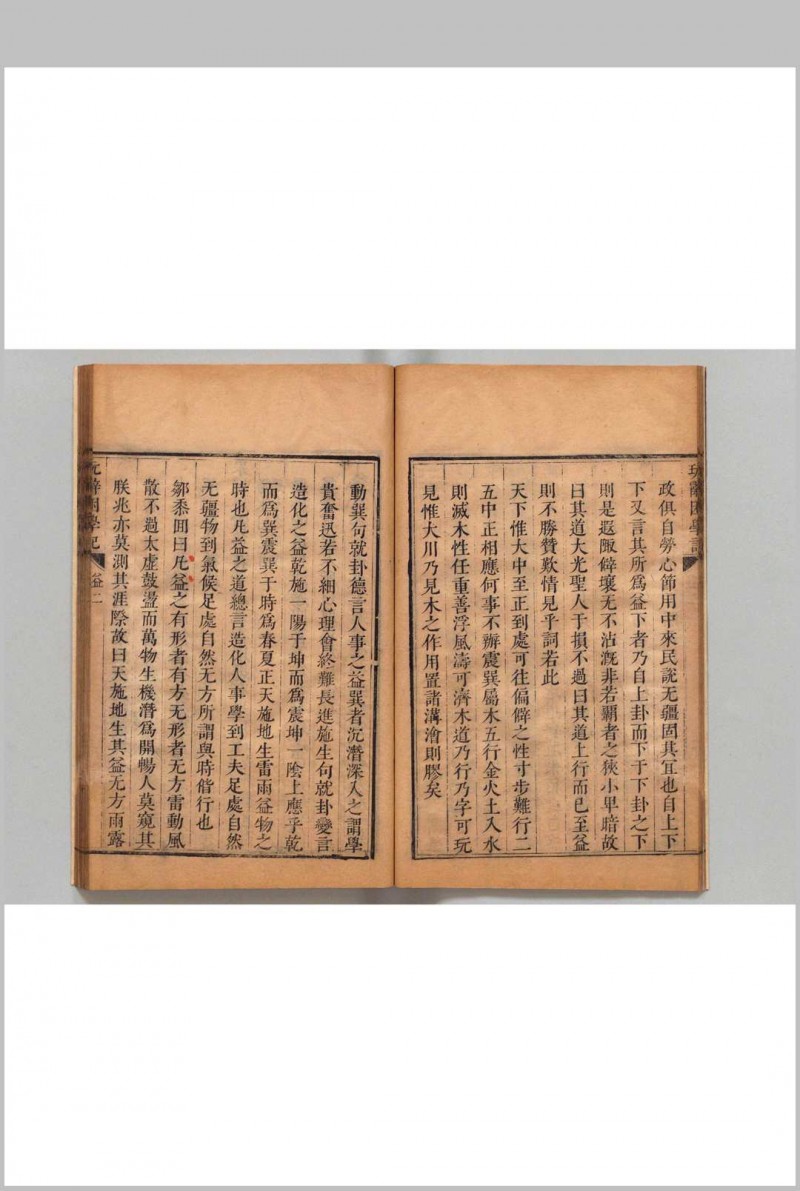 政俱自勞心節用中來民說无疆固其宜也自上下
下又言其所為益下者乃自上卦而下于下卦之下
則是遐陬僻壤无不沾溉非若覇者之狹小卑暗故
曰其道大光聖人于損不過曰其道上行而已至益
則不勝贊歎情見乎詞若此
天下惟大中至正到處可往偏僻之性寸步難行二
五中正相應何事不辦震巽屬木五行金火土入水
則滅木性任重善浮風濤可濟木道乃行乃字可玩
見惟大川乃見木之作用置諸溝澮則膠矣
動巽句就卦德言人事之益巽者沉潛深入之謂學
貴奮迅若不細心理會終難長進施生句就卦變言
造化之益乾施一陽于坤而為震坤一陰上應乎乾
而為巽震巽于時為春夏正天施地生雷雨益物之
時也凡益之道總言造化人事學到工夫足處自然
无疆物到氣候足處自然无方所謂與時偕行也
鄒黍回曰凡益之有形者有方无形者无方雷動風
散不過太虛鼓盪而萬物生機潛為開暢人莫窺其
朕兆亦莫測其涯際故曰天施地生其益无方雨露
玩辭困學記
益二